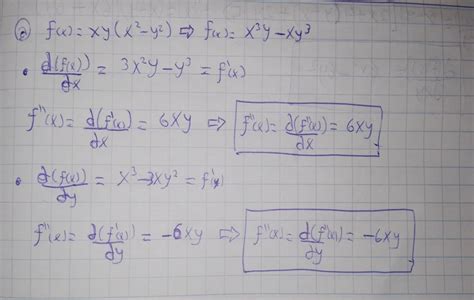 ② f(x) = xy(x²-y²) ⇒ f(x) = x³y - xy³
• d(f(x))/dx = 3x²y - y³ = f'(x)
f''(x) = d(f'(x))/dx = 6xy ⇒ f''(x) = d(f'(x))/dx = 6xy
• d(f(x))/dy = x³ - 3xy² = f'(x)
f''(x) = d(f'(x))/dy = -6xy ⇒ f''(x) = d(f'(x))/dy = -6xy